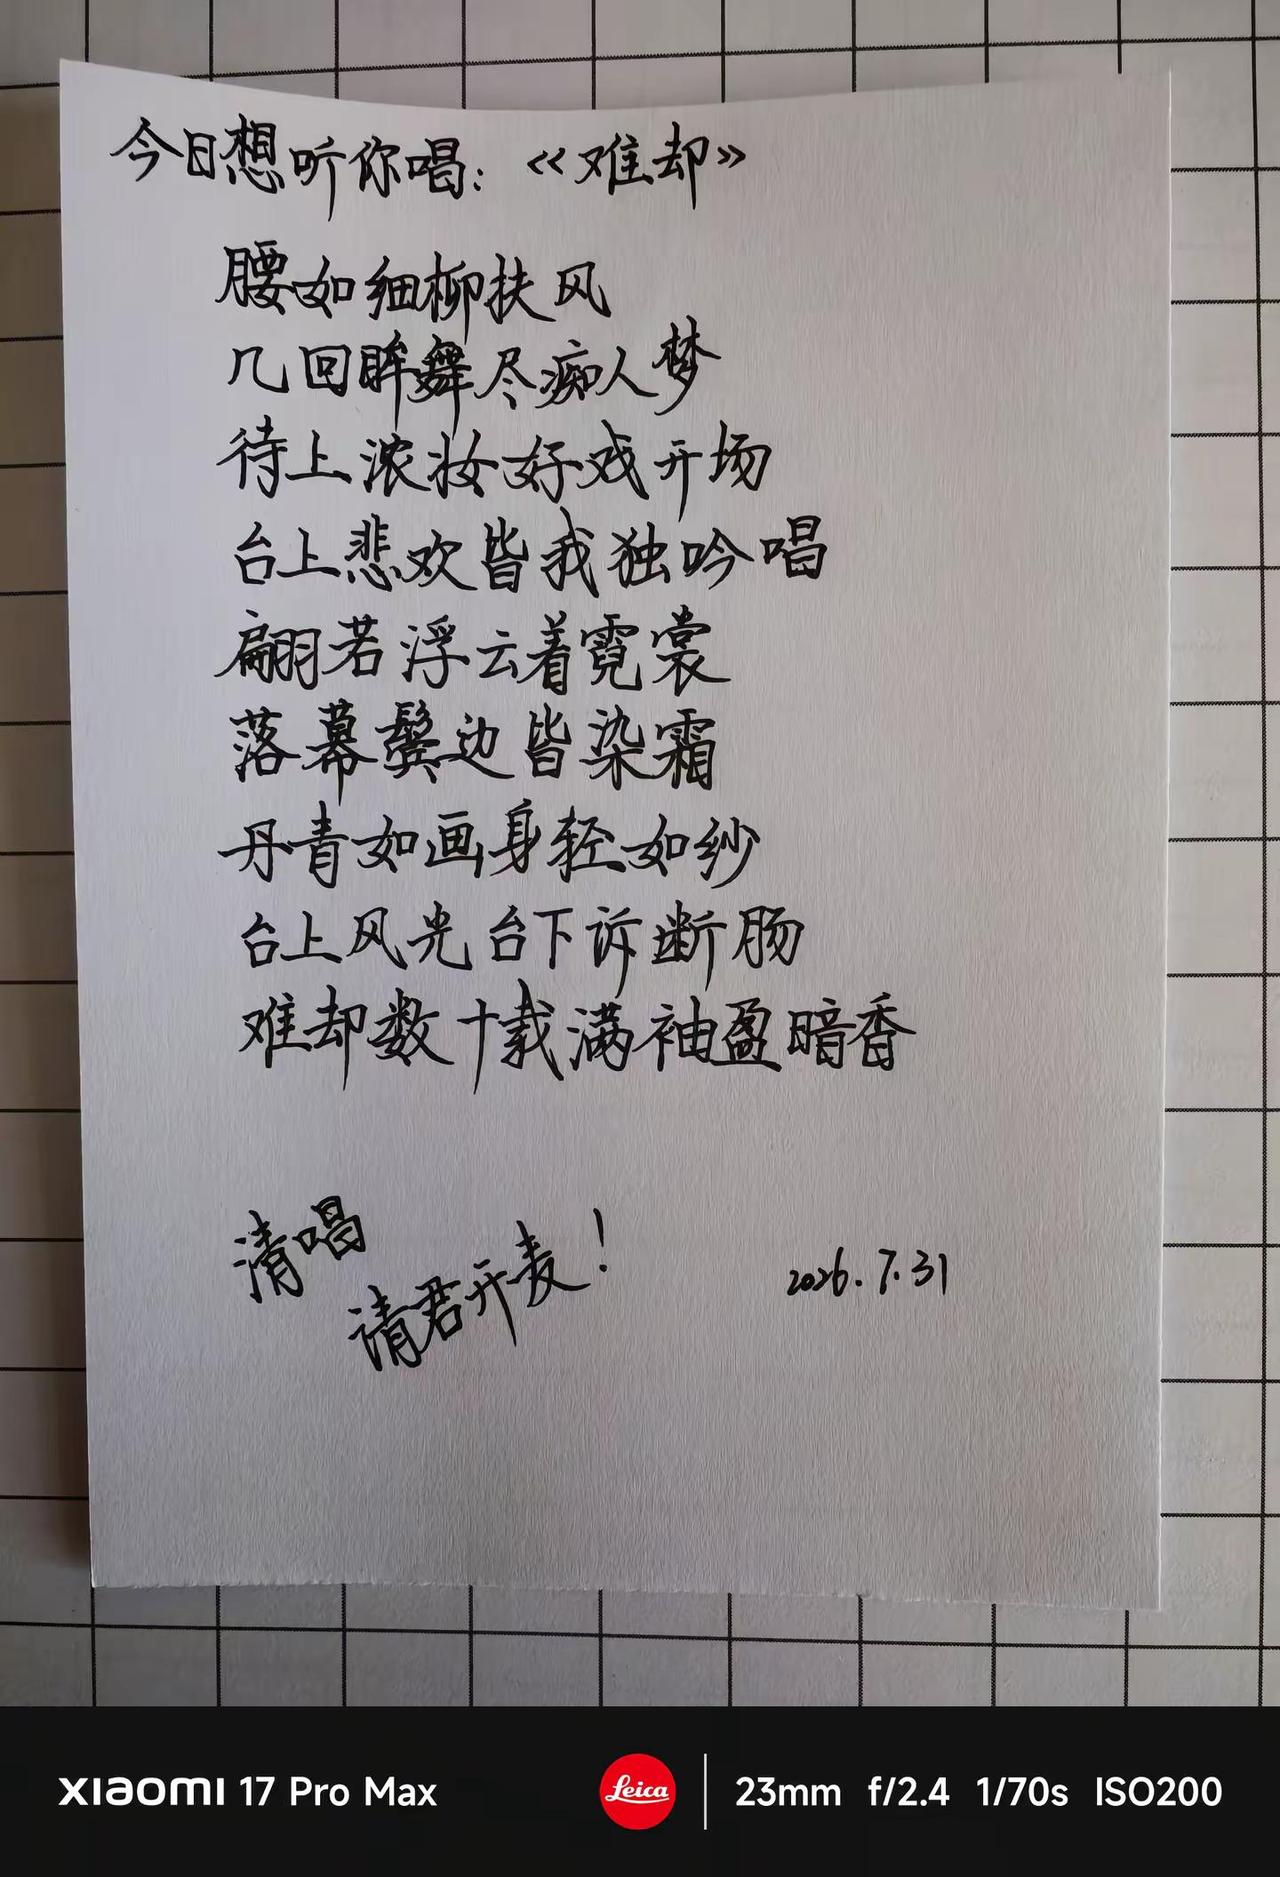 今日想听你唱：《难却》
腰如细柳扶风
几回眸舞尽痴人梦
待上浓妆好戏开场
台上悲欢皆我独吟唱
翩若浮云着霓裳
落幕鬓边皆染霜
丹青如画身轻如纱
台上风光台下诉断肠
难却数十载满袖盈暗香
清唱
请君开麦！
2026.7.31
xiaomi 17 Pro Max
Leica
23mm f/2.4 1/70s ISO200